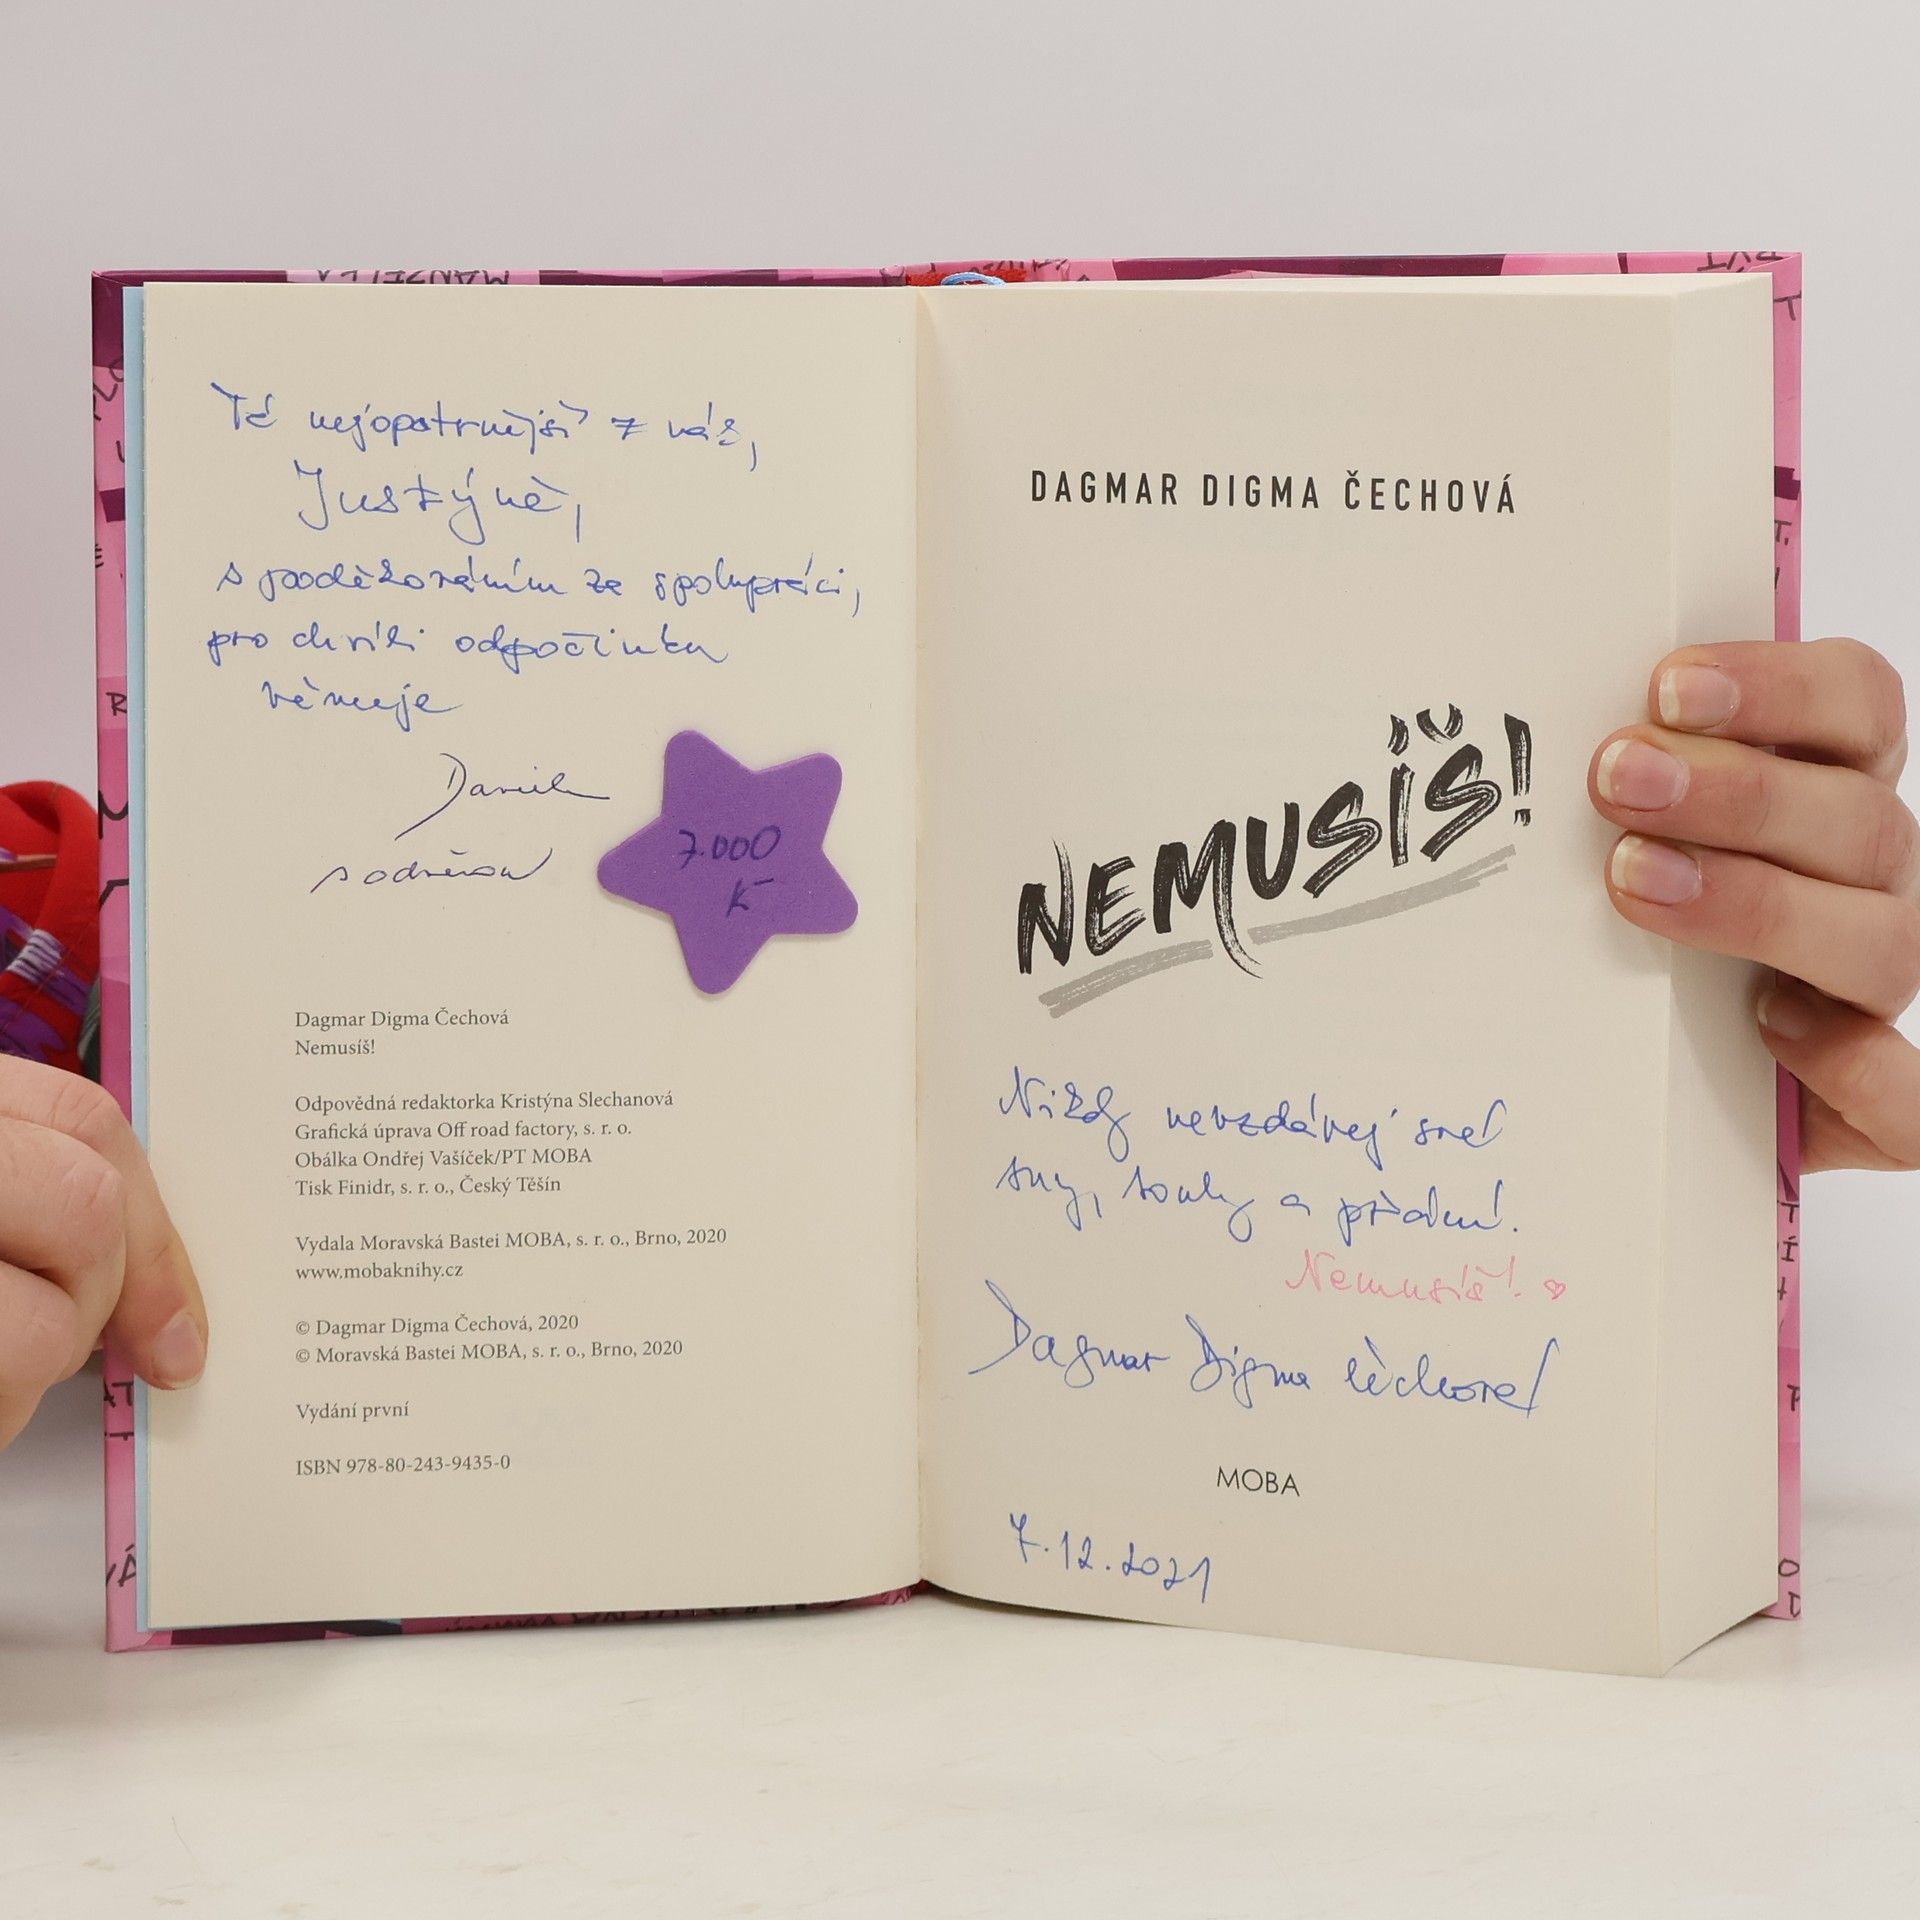 Té nejopatrnější z vás,
Justýně,
s poděkováním za spolupráci,
pro chvíli odpočinku
věnuje
7.000
K
Dagmar Digma Čechová
Nemusíš!
Odpovědná redaktorka Kristýna Slechanová
Grafická úprava Off road factory, s. r. o.
Obálka Ondřej Vašíček/PT MOBA
Tisk Finidr, s. r. o., Český Těšín
Vydala Moravská Bastei MOBA, s. r. o., Brno, 2020
www.mobaknihy.cz
© Dagmar Digma Čechová, 2020
© Moravská Bastei MOBA, s. r. o., Brno, 2020
Vydání první
ISBN 978-80-243-9435-0
DAGMAR DIGMA ČECHOVÁ
NEMUSÍŠ!
Nikdy nevzdávej své
sny, touhy a přání.
Nemusíš!
Dagmar Digma Čechová
MOBA
7.12.2021